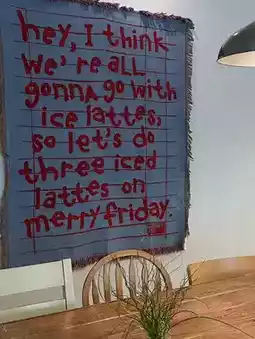 hey, I think
we're all
gonna go with
ice lattes,
so let's do
three iced
lattes on
merry friday.